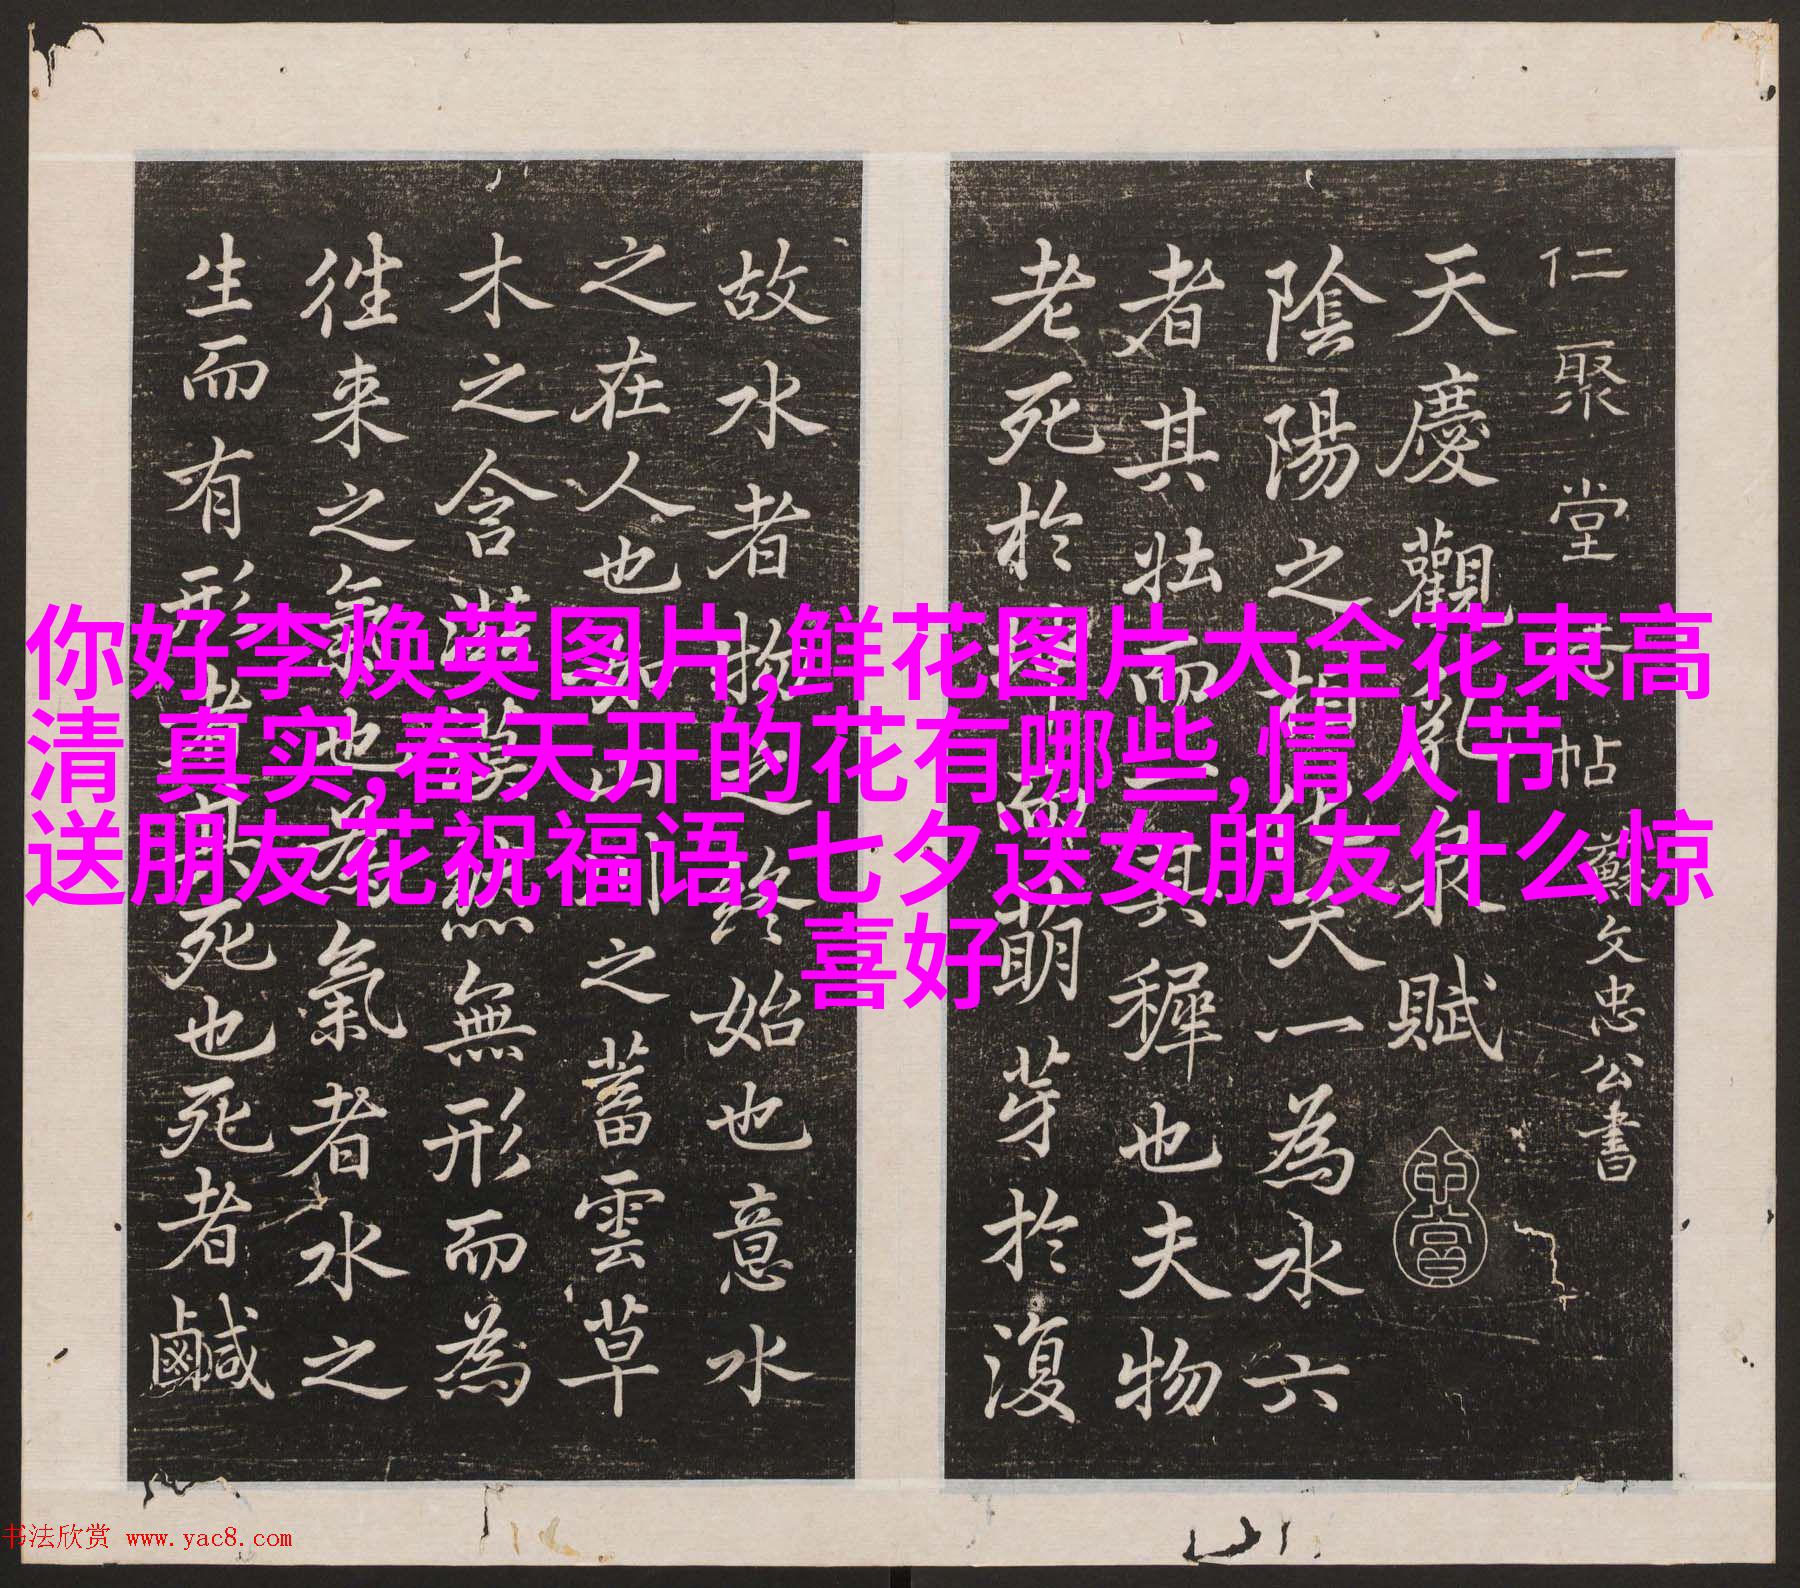 你好李焕英图片,鲜花图片大全花束高
清 真实,春天开的花有哪些,情人节
送朋友花祝福语,七夕送女朋友什么惊
喜好
仁聚堂帖蘇文忠公書
天慶觀乳泉賦
陰陽之相化天一為水六
者其壯而其穉也夫物
老死於萌芽於復
故水者物之終始也意水
之在人也山川之蓄雲草
木之含漠無形而為
往来之氣也為氣者水之
生而有形者死也死者鹹
书法欣赏 www.yac8.com